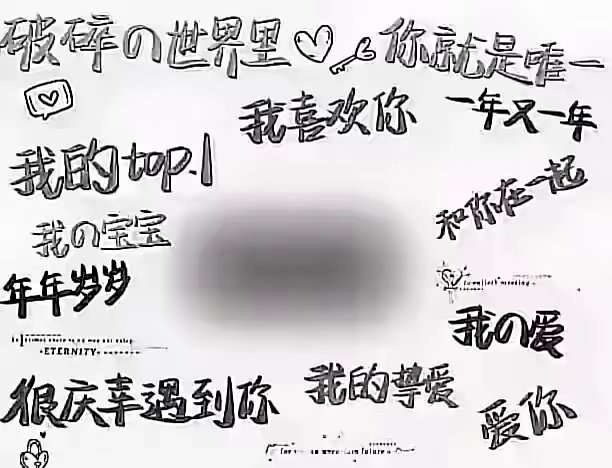 破碎の世界里
你就是唯一
我喜欢你
一年又一年
我的top.1
和你在一起
我の宝宝
年年岁岁
ETERNITY
我の爱
很庆幸遇到你
我的挚爱
爱你